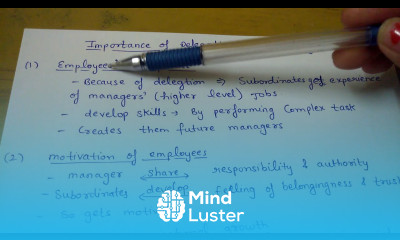 Importance of
(1) Employees
- Because of delegtion → Subordinates get experience
of managers' (higher level) Jobs
- develop skills → By performing Complex task
- Creates them future managers
(2) motivation of employees
- manager share responsibility & authority
- Subordinates develop feeling of belongingness & trust
- So gets
Mind
Luster